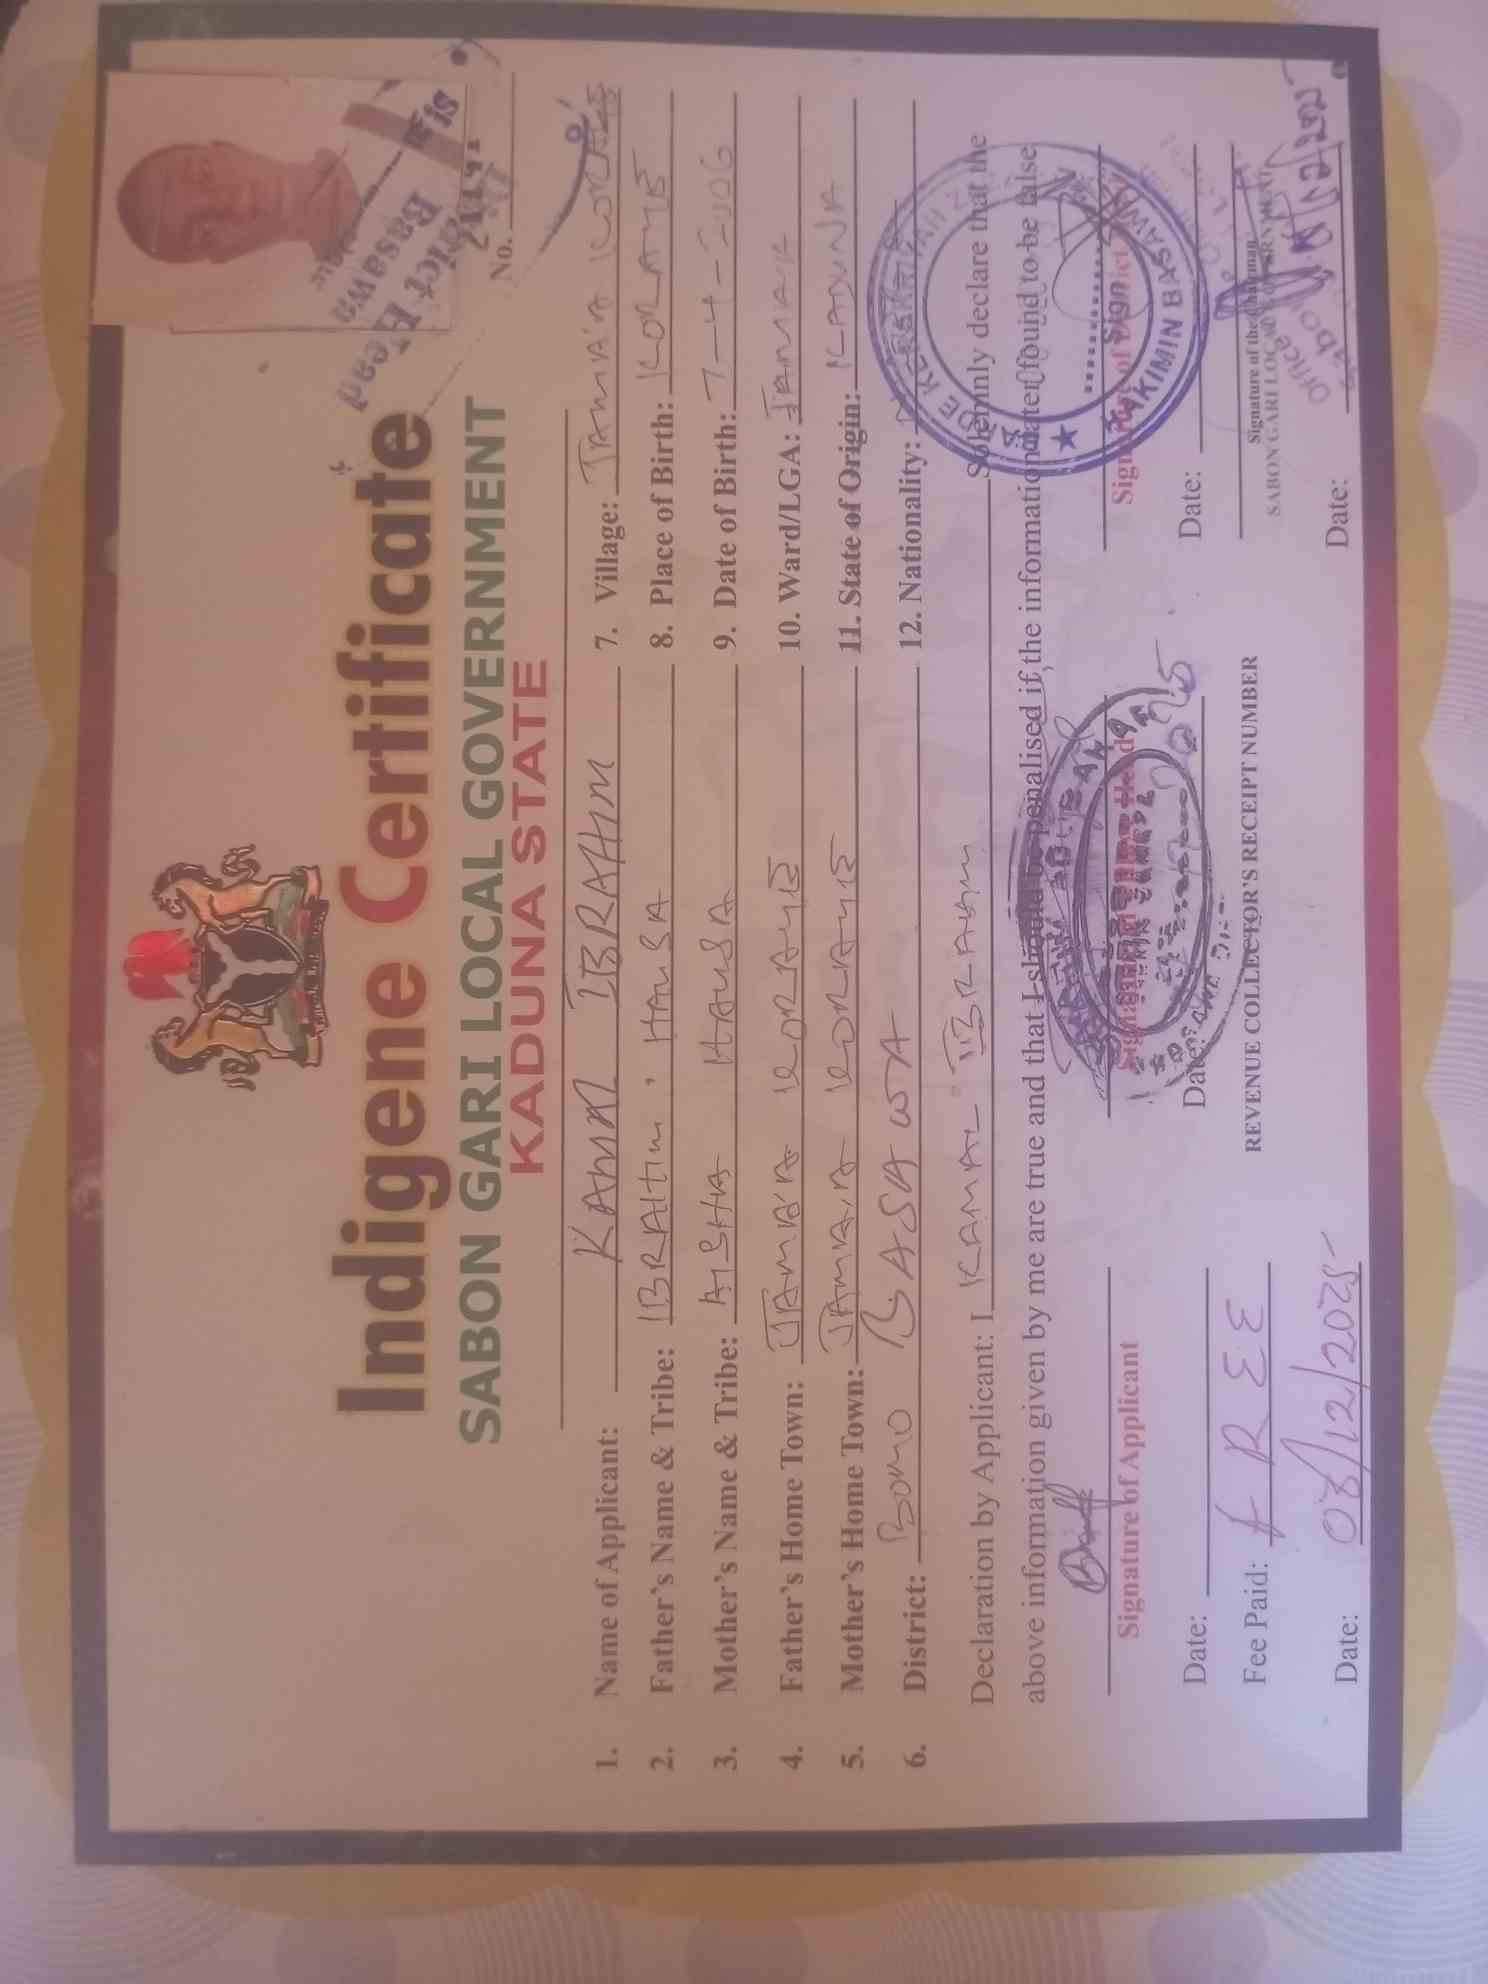 Indigene Certificate
SABON GARI LOCAL GOVERNMENT
KADUNA STATE
No.
District Head
Basawa
1. Name of Applicant: KAMAL IBRAHIM
2. Father's Name & Tribe: IBRAHIM, HAUSA
3. Mother's Name & Tribe: AISHA HAUSA
4. Father's Home Town: JAMA'A KORAYE
5. Mother's Home Town: JAMA'A KORAYE
6. District: BOMO BASAWA
7. Village: JAMA'A KORAYE
8. Place of Birth: KORAYE
9. Date of Birth: 7-4-2006
10. Ward/LGA: JAMA'A
11. State of Origin: KADUNA
12. Nationality:
Declaration by Applicant: I KAMAL IBRAHIM Solemnly declare that the
above information given by me are true and that I should be penalised if, the information later found to be false
Signature of Applicant
Signature of District
HAKIMIN BASAWA
Date:
Date:
Date:
Fee Paid: FREE
REVENUE COLLECTOR'S RECEIPT NUMBER
Signature of the Chairman
SABON GARI LOCAL GOVERNMENT
Date: 08/12/2025
Date: